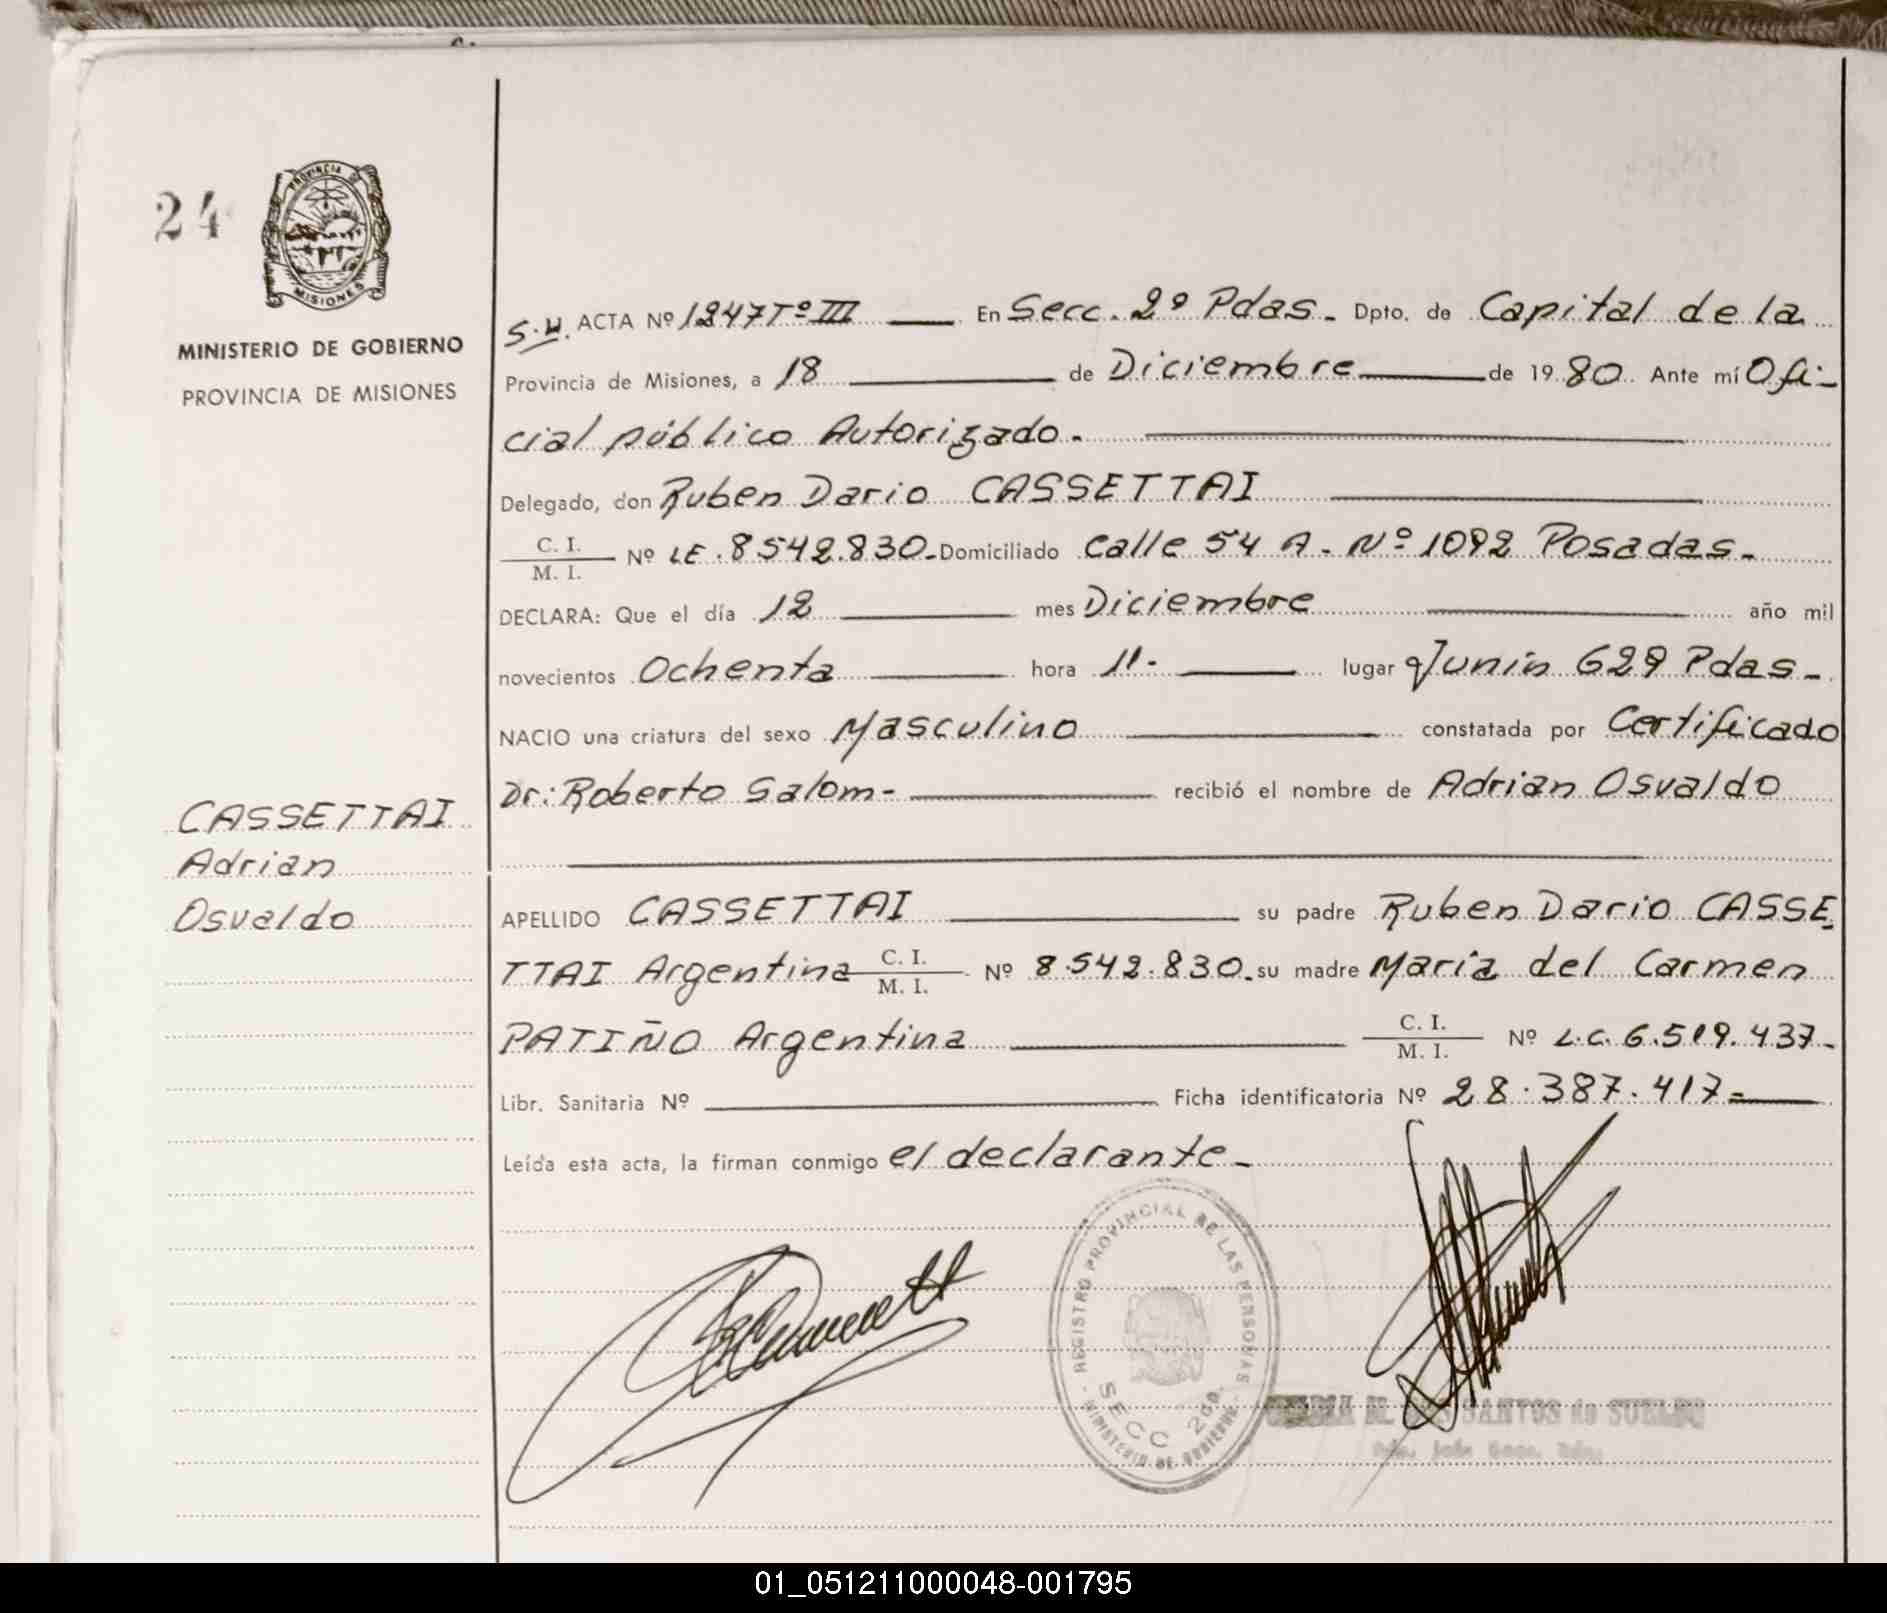 24
PROVINCIA DE
MISIONES
MINISTERIO DE GOBIERNO
PROVINCIA DE MISIONES
CASSETTAI
Adrian
Osvaldo
S.H. ACTA Nº 1247 Tº III En Secc. 2º Pdas. Dpto. de Capital de la
Provincia de Misiones, a 18 de Diciembre de 1980. Ante mí Ofi-
cial público Autorizado.
Delegado, don Ruben Dario CASSETTAI
C. I.
M. I. Nº LE. 8.542.830. Domiciliado Calle 54 A. Nº 1092 Posadas.
DECLARA: Que el día 12 mes Diciembre año mil
novecientos Ochenta hora 11. lugar Junín 629 Pdas.
NACIO una criatura del sexo Masculino constatada por Certificado
Dr: Roberto Salom- recibió el nombre de Adrian Osvaldo
APELLIDO CASSETTAI su padre Ruben Dario CASSE
TTAI Argentina C. I.
M. I. Nº 8.542.830. su madre María del Carmen
PATIÑO Argentina C. I.
M. I. Nº L.C. 6.519.437.
Libr. Sanitaria Nº Ficha identificatoria Nº 28.387.417=
Leída esta acta, la firman conmigo el declarante.
REGISTRO PROVINCIAL DE LAS PERSONAS
SECC 2da.
MINISTERIO DE GOBIERNO
SANTOS de
01_051211000048-001795